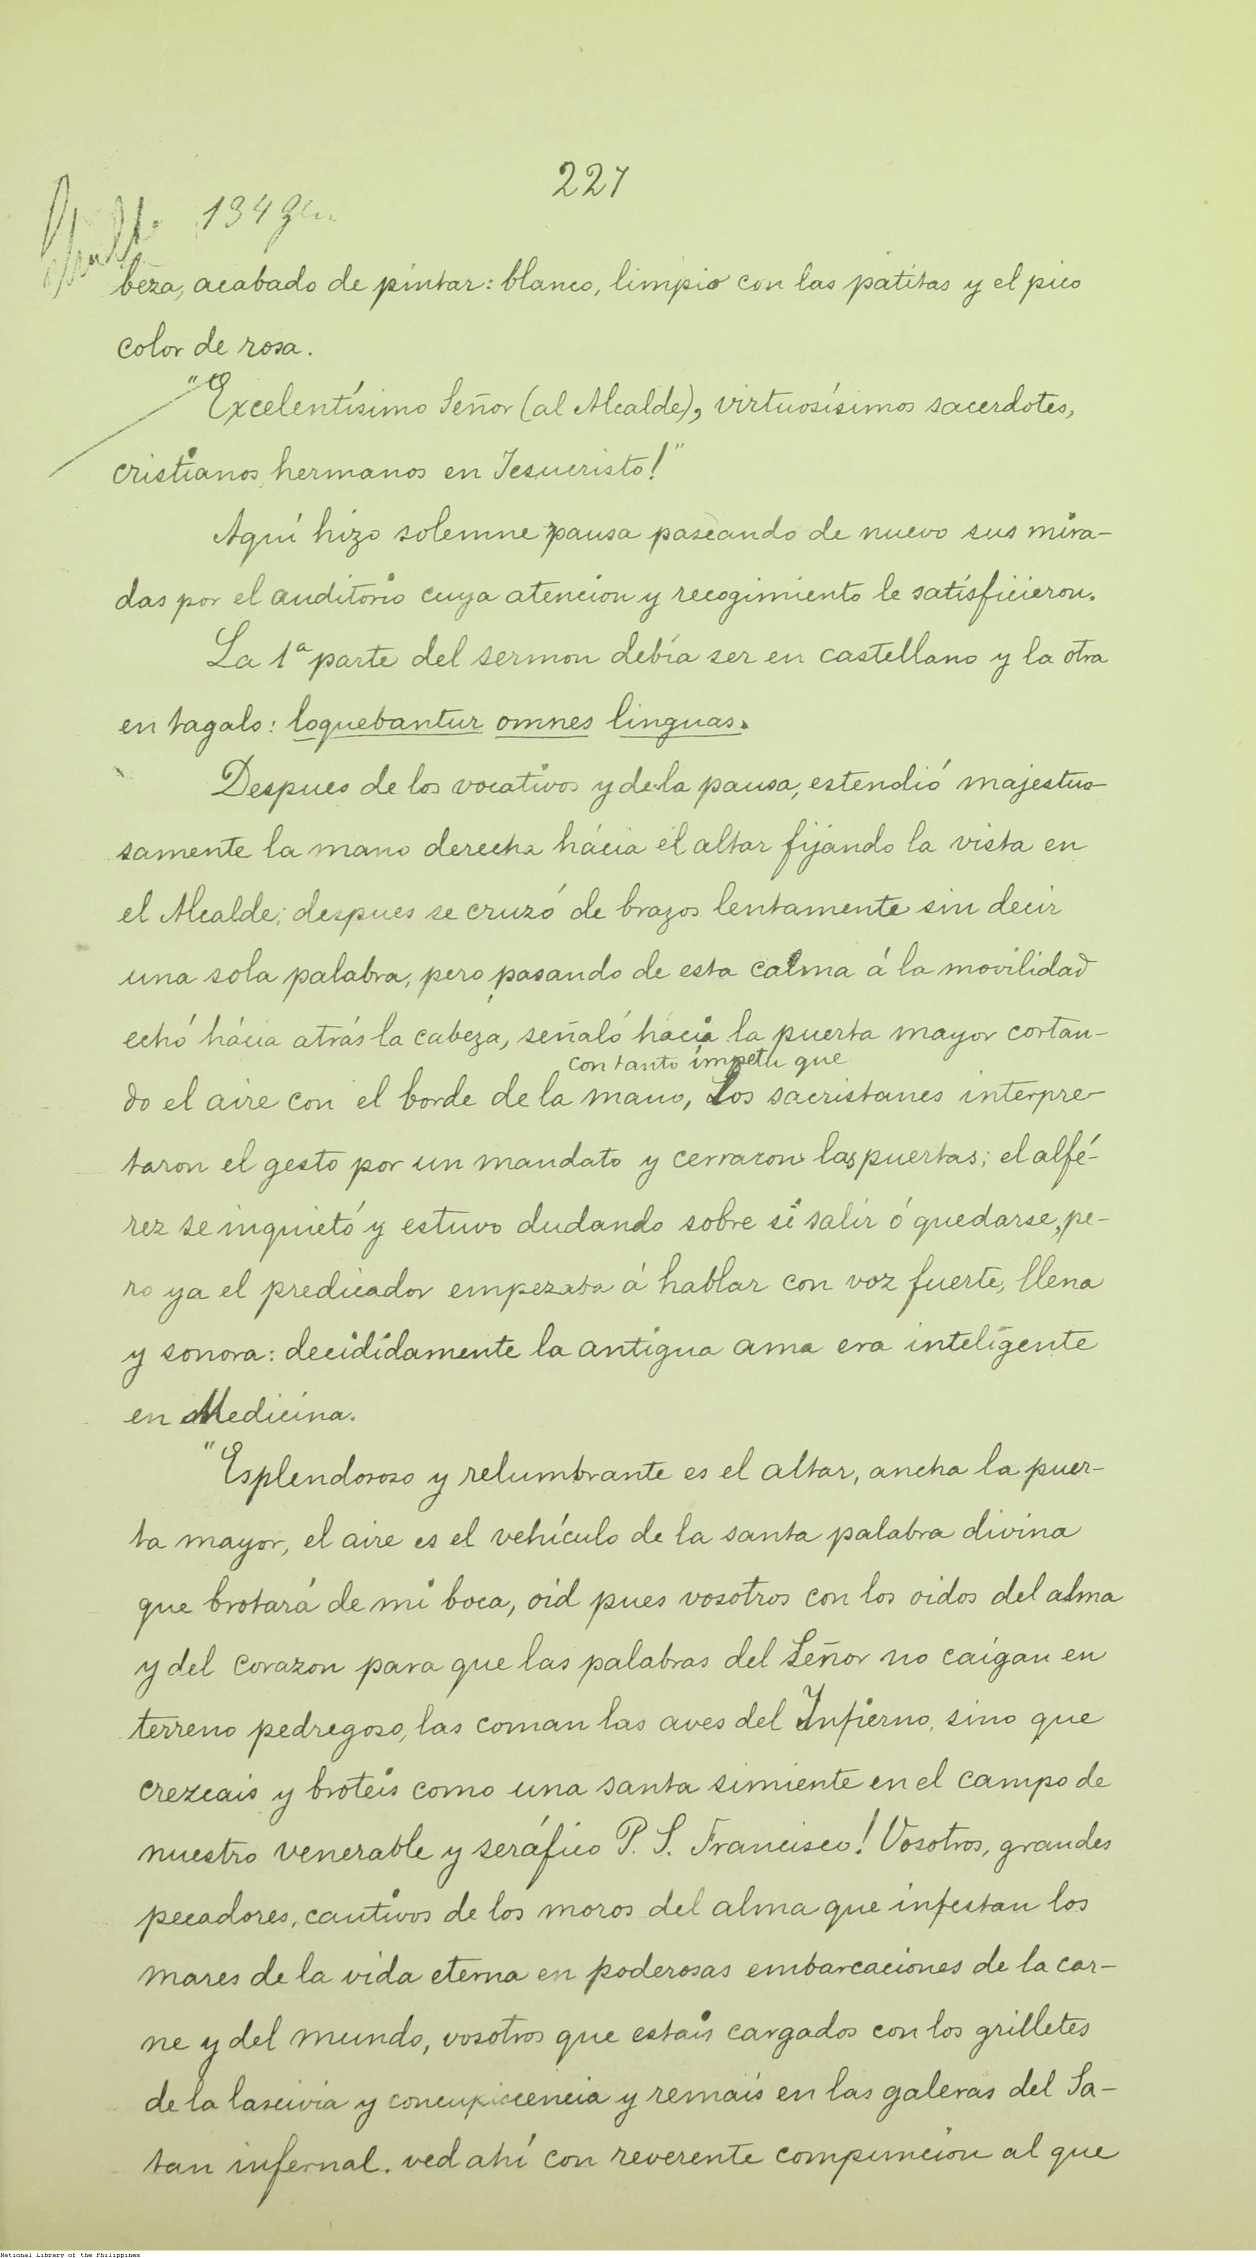 227
134
beza, acabado de pintar: blanco, limpio con las patitas y el pico
color de rosa.
"Excelentísimo Señor (al Alcalde), virtuosísimos sacerdotes,
cristianos, hermanos en Jesucristo!"
Aquí hizo solemne pausa paseando de nuevo sus mira-
das por el auditorio cuya atencion y recogimiento le satisficieron.
La 1ª parte del sermon debía ser en castellano y la otra
en tagalo: loquebantur omnes linguas.
Despues de los vocativos y de la pausa, estendió majestuo-
samente la mano derecha hácia el altar fijando la vista en
el Alcalde; despues se cruzó de brazos lentamente sin decir
una sola palabra, pero pasando de esta calma á la movilidad
echó hácia atrás la cabeza, señaló hácia la puerta mayor cortan-
con tanto ímpetu que
do el aire con el borde de la mano, los sacristanes interpre-
taron el gesto por un mandato y cerraron las puertas; el alfé-
rez se inquietó y estuvo dudando sobre si salir ó quedarse, pe-
ro ya el predicador empezaba á hablar con voz fuerte, llena
y sonora: decididamente la antigua ama era inteligente
en Medicina.
"Esplendoroso y relumbrante es el altar, ancha la puer-
ta mayor, el aire es el vehículo de la santa palabra divina
que brotará de mi boca, oid pues vosotros con los oidos del alma
y del corazon para que las palabras del Señor no caigan en
terreno pedregoso, las coman las aves del Infierno, sino que
crezcais y broteis como una santa simiente en el campo de
nuestro venerable y seráfico P. S. Francisco! Vosotros, grandes
pecadores, cautivos de los moros del alma que infestan los
mares de la vida eterna en poderosas embarcaciones de la car-
ne y del mundo, vosotros que estais cargados con los grilletes
de la lascivia y concupiscencia y remais en las galeras del Sa-
tan infernal, ved ahí con reverente compuncion al que
National Library of the Philippines